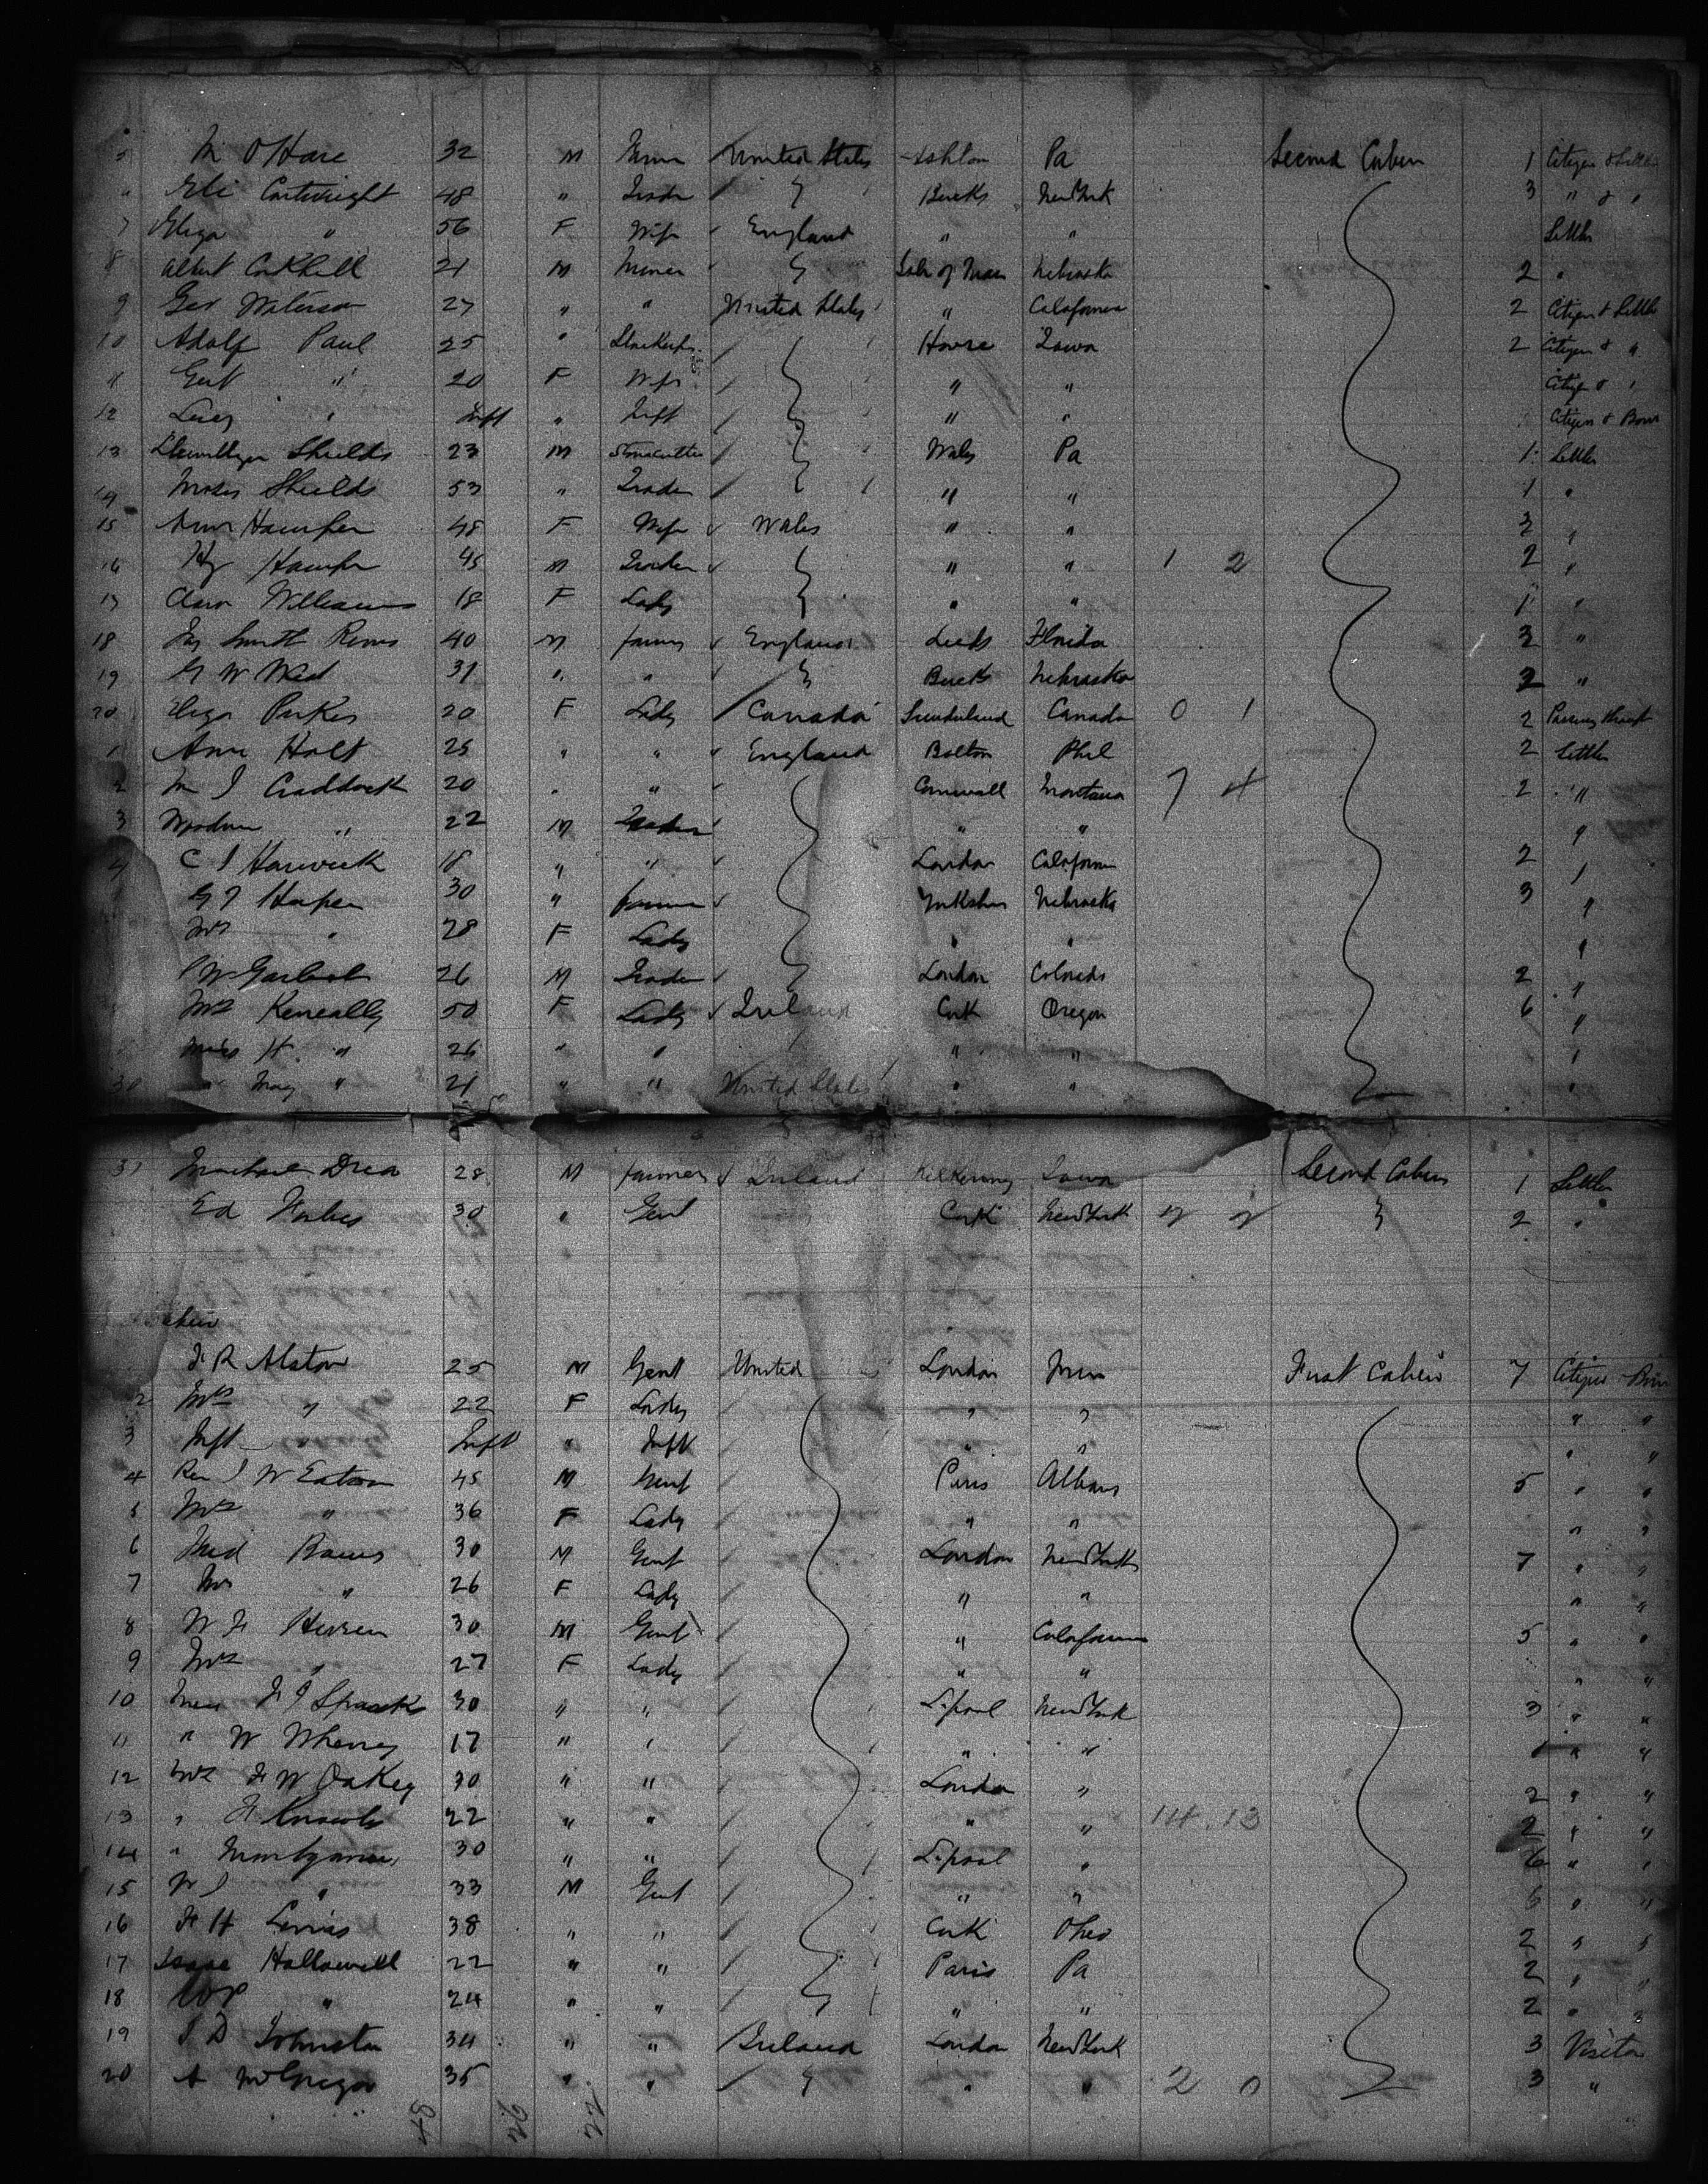 5 M O'Hare 32 M United States Ashton Pa Second Cabin 1 Citizen & Settler
Eli Cartwright 48 " Trader Bucks New York 3 " & "
7 Eliza " 56 F Wife England " " Settler
8 Albert Corkhill 21 M Miner Isle of Man Nebraska 2 "
9 Geo Waterson 27 " " United States " Calafornia 2 Citizen & Settler
10 Adolf Paul 25 " Havre Iowa 2 Citizen & "
11 Gert " 20 F Wife " " Citizen & "
12 Lucy " Inft " Inft " " Citizen & Born
13 Llewellyn Shields 23 M Stonecutter Wales Pa 1 Settler
14 Moses Shields 53 " Trader " " 1 "
15 Ann Hamper 48 F Wife Wales " " 2 "
16 Hy Hamper 45 M Trader " " 1 2 2 "
17 Clara Williams 18 F Lady " " 1 "
18 Smith 40 M farmer England Leeds Florida 3 "
19 G W West 31 " " Bucks Nebraska 2 "
20 Eliza Parkes 20 F Lady Canada Sunderland Canada 0 1 2 Passing through
1 Ann Holt 25 " " England Bolton Phil 2 Settler
2 M J Craddock 20 " " Cornwall Montana 7 4 2 "
3 " 22 M Trader " " "
4 C J Harwick 18 " " London Calafornia 2 "
G J Harper 30 " farmer Yorkshire Nebraska 3 "
Mrs " 28 F Lady " " "
W Garland 26 M Trader London Colorado 2 "
Mrs Keneally 50 F Lady Ireland Cork Oregon 6 "
Miss H " 26 " " " " "
30 " May " 21 " " United States " " "
31 Michael Drea 28 M farmer Ireland Kilkenny Iowa Second Cabin 1 Settler
Ed Forbes 30 " Gent Cork New York 2 "
Cabin
F R Alston 25 M Gent United London First Cabin 7 Citizen Born
2 Mrs " 22 F Lady " " " "
3 Inft " Inft " Inft " " " "
4 Rev J W Eaton 45 M Gent Paris Albany 5 " "
5 Mrs " 36 F Lady " " " "
6 Fred 30 M Gent London New York 7 " "
7 Mrs " 26 F Lady " " " "
8 W F 30 M Gent " Calafornia 5 " "
9 Mrs " 27 F Lady " " " "
10 Miss F J Sparks 30 " " L.pool New York 3 " "
11 " W Wherry 17 " " " " " "
12 Mrs F W Oakey 30 " " London " 2 " "
13 " F Knowles 22 " " " " 14 13 2 " "
14 " Montgomery 30 " " L.pool " 6 " "
15 W J " 33 M Gent " " " "
16 F H Lewis 38 " " Cork Ohio 2 " "
17 Isaac Hallowell 22 " " Paris Pa 2 " "
18 " 24 " " " " 2 " "
19 J D Johnston 34 " " Ireland London New York 3 Visitor
20 A McGregor 35 " " " " 2 0 3 "